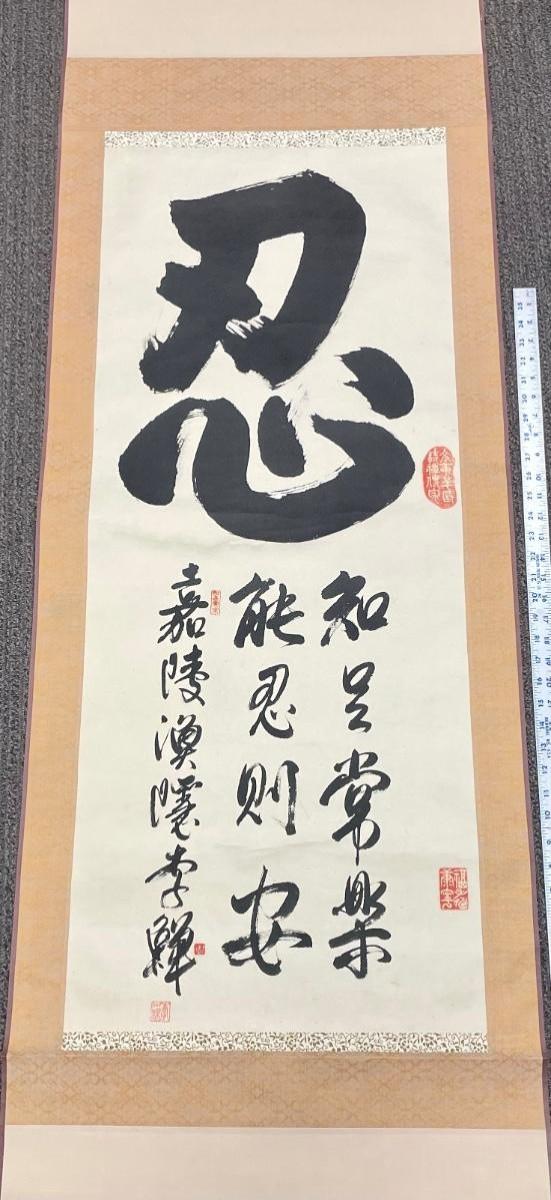 忍
知足常樂
能忍則安
嘉陵漁隱李鱓